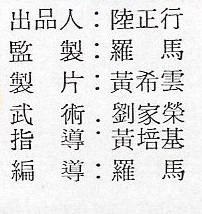 出品人：陸正行
監製：羅馬
製片：黃希雲
武術．劉家榮
指導：黃培基
編導：羅馬